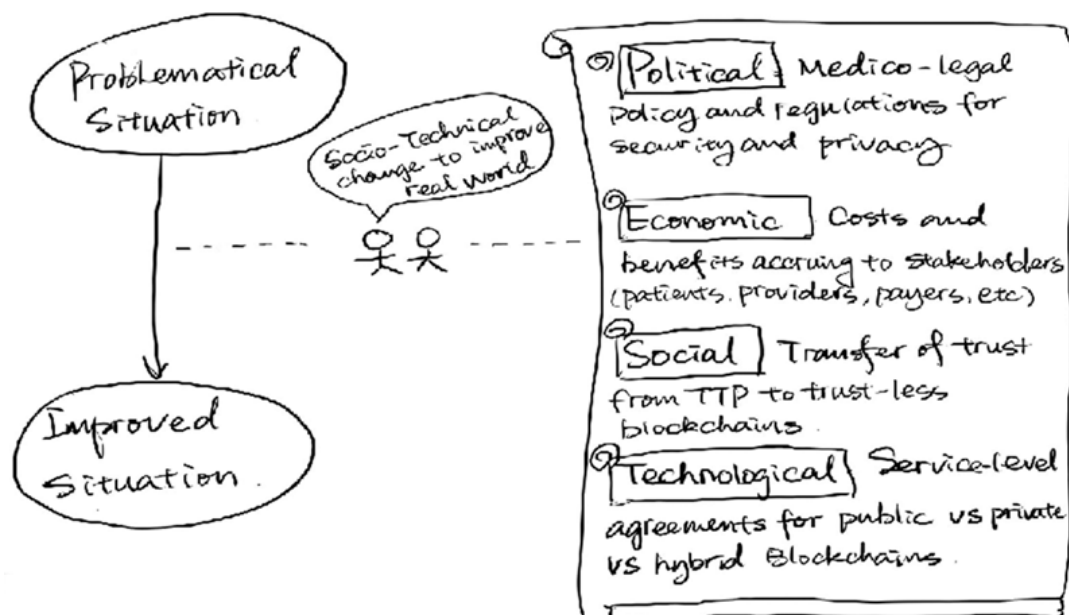 Problematical
Situation
Socio-Technical
change to improve
real world
Improved
Situation.
Political. Medico-legal
policy and regulations for
security and privacy
Economic Costs and
benefits accruing to stakeholders
(patients, providers, payers, etc)
Social Transfer of trust
from TTP to trust-less
blockchains.
Technological Service-level
agreements for public vs private
vs hybrid Blockchains.